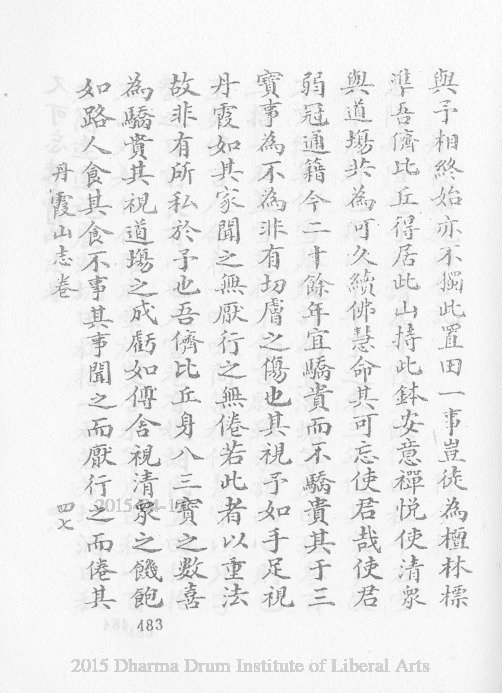 與予相終始亦不獨此置田一事豈徒為檀林標
準吾儕比丘得居此山持此鉢安意禪悅使清眾
與道塲於為可久續佛慧命其可忘使君哉使君
弱冠通籍今二十餘年宜驕貴而不驕貴其于三
寶事為不為非有切膚之傷也其視予如手足視
丹霞如其家聞之無厭行之無倦若此者以重法
故非有所私於予也吾儕比丘身入三寶之數喜
為驕貴其視道塲之成虧如傅舍視清眾之饑飽
如路人食其食不事其事聞之而厭行之而倦其
丹霞山志卷
四七
483
2015 Dharma Drum Institute of Liberal Arts